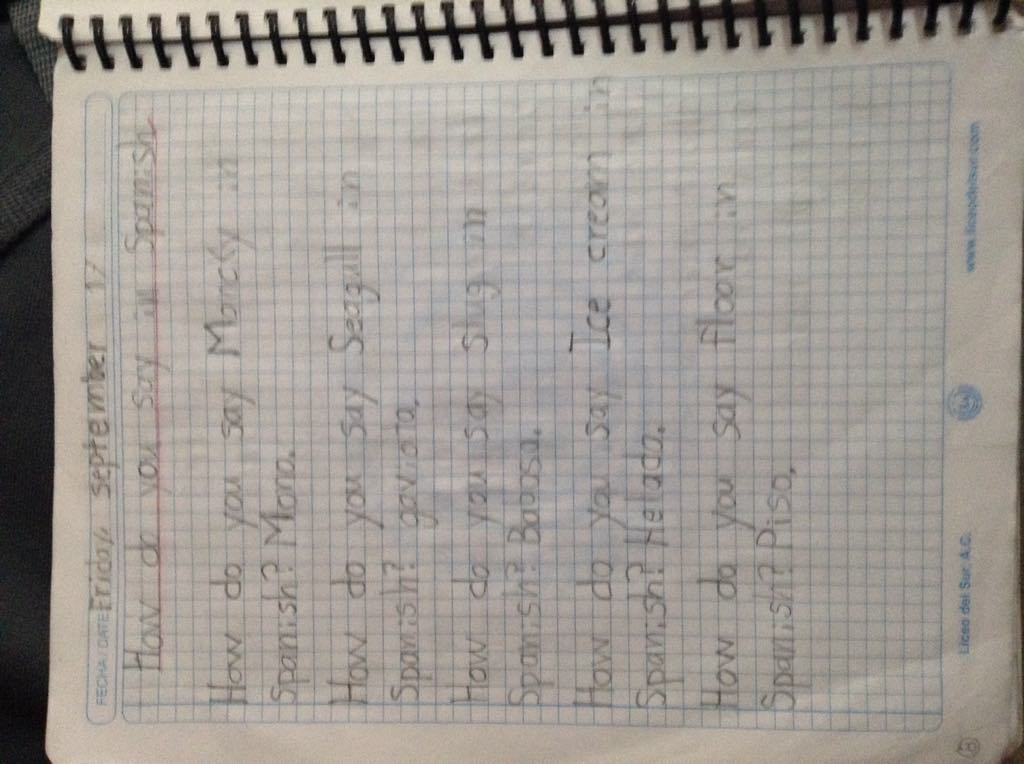 FECHA: DATE: Friday, september 17
How do you say in Spanish
How do you say Moncky in
Spanish? Mono.
How do you say Seagull in
Spanish? gaviota.
How do you say Slug in
Spanish? Babosa.
How do you say Ice cream in
Spanish? Helado.
How do you say floor in
Spanish? Piso.
Liceo del Sur, A.C.
www.liceodelsur.com